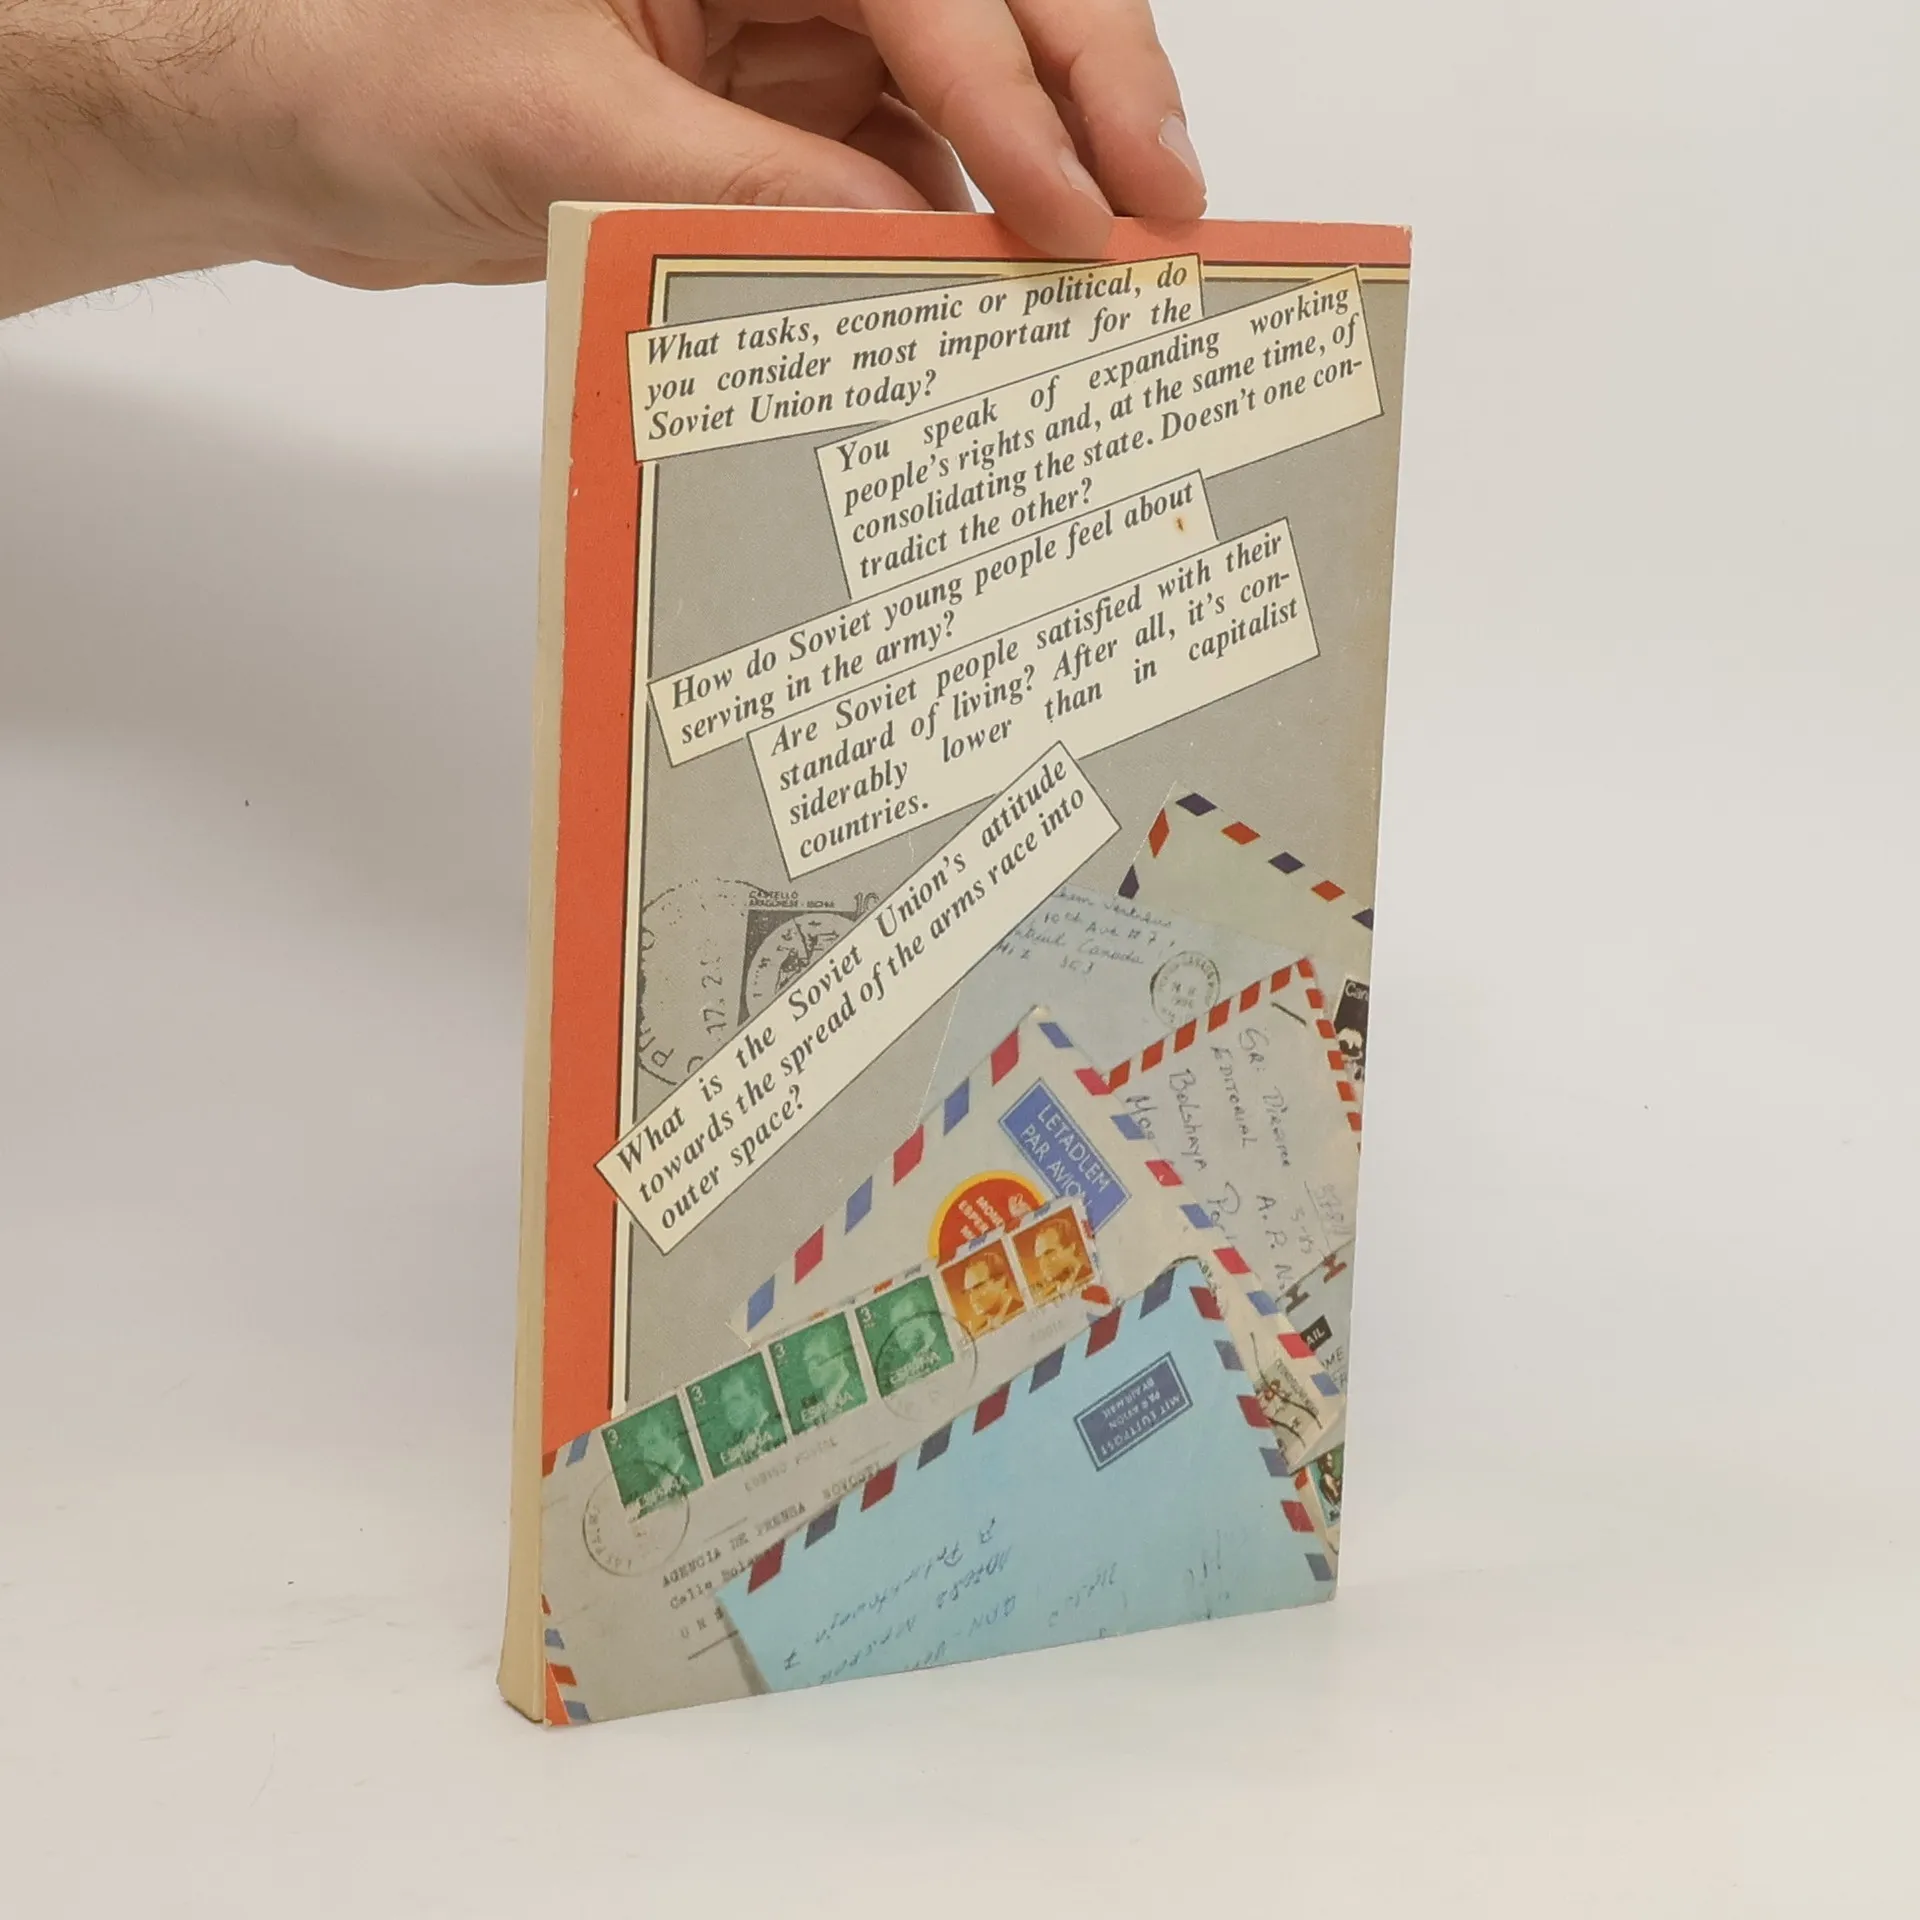 What tasks, economic or political, do
you consider most important for the
Soviet Union today?
You speak of expanding working
people's rights and, at the same time, of
consolidating the state. Doesn't one con-
tradict the other?
How do Soviet young people feel about
serving in the army?
Are Soviet people satisfied with their
standard of living? After all, it's con-
siderably lower than in capitalist
countries.
What is the Soviet Union's attitude
towards the spread of the arms race into
outer space?
CASTELLO
ARAGONESE - ISCHIA
10
17. 2
10th Ave # 7,
Canada
LETADLEM
PAR AVION
Can
SR: Director
EDITORIAL
A. P. N.
Bolshaya
AIL
3
ESPAÑA
3
ESPAÑA
3
ESPAÑA
3
ESPAÑA
MIT LUFTPOST
PAR AVION
BY AIRMAIL
AGENCIA DE PRENSA NOVOSTI
Calle